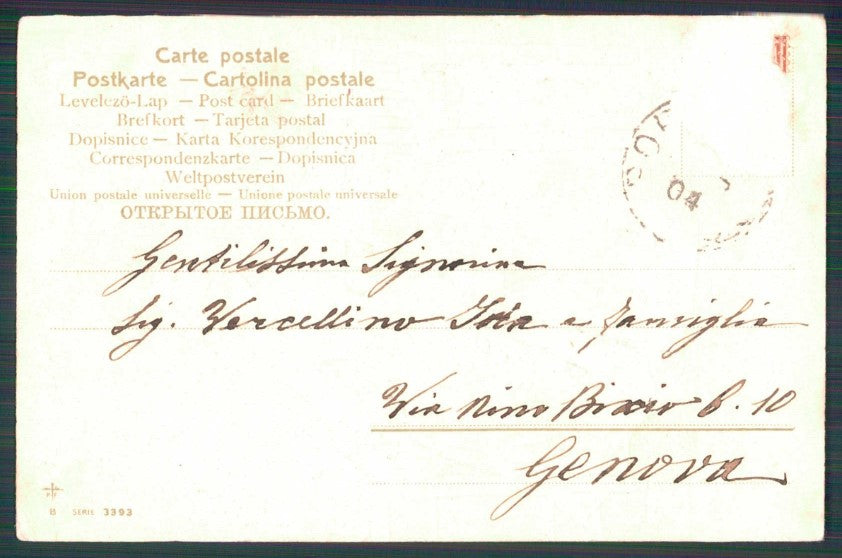 Carte postale
Postkarte — Cartolina postale
Levelező-Lap — Post card — Briefkaart
Brefkort — Tarjeta postal
Dopisnice — Karta Korespondencyjna
Correspondenzkarte — Dopisnica
Weltpostverein
Union postale universelle — Unione postale universale
ОТКРЫТОЕ ПИСЬМО.
04
Gentilissima Signorina
Sig. Vercellino Ida e famiglia
Via Nino Bixio 6. 10
Genova
B SERIE 3393